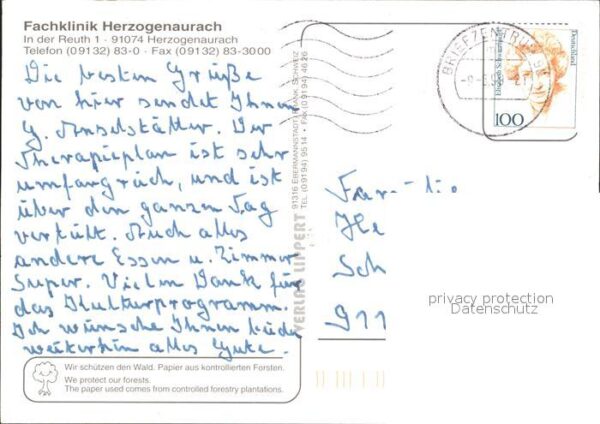 Fachklinik Herzogenaurach
In der Reuth 1 · 91074 Herzogenaurach
Telefon (09132) 83-0 · Fax (09132) 83-3000
Die besten Grüße
von hier sendet Ihnen
G. Anselstätter. Der
Therapieplan ist sehr
umfangreich, und ist
über den ganzen Tag
verteilt. Auch alles
andere Essen u. Zimmer
Super. Vielen Dank für
das Kulturprogramm.
Ich wünsche Ihnen beide
weiterhin alles Gute.
Wir schützen den Wald. Papier aus kontrollierten Forsten.
We protect our forests.
The paper used comes from controlled forestry plantations.
VERLAG LIPPERT
91316 EBERMANNSTADT/FRÄNK. SCHWEIZ
TEL. (09194) 9514 · FAX (09194) 4626
BRIEFZENTRUM
Deutschland
Elisabeth Schwarzhaupt
100
Fam
He
Sch
911
privacy protection
Datenschutz